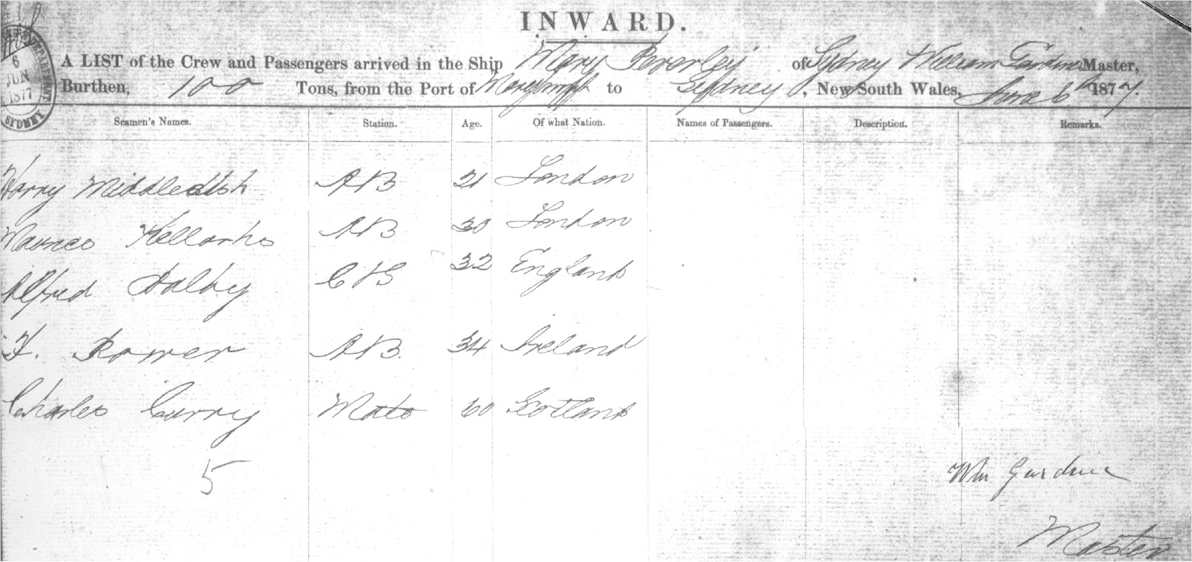 INWARD.
A LIST of the Crew and Passengers arrived in the Ship Mary Peverley of Sydney William Gardiner Master,
Burthen, 100 Tons, from the Port of to Sydney, New South Wales, June 6th 1877.
6
JUN
1877
SYDNEY
Seamen's Names. Station. Age. Of what Nation. Names of Passengers. Description. Remarks.
Harry Middleditch AB 21 London
AB 30 London
Alfred Dalby C & S 32 England
F. Power AB. 34 Ireland
Charles Curry Mate 60 Scotland
5
Wm Gardner
Master